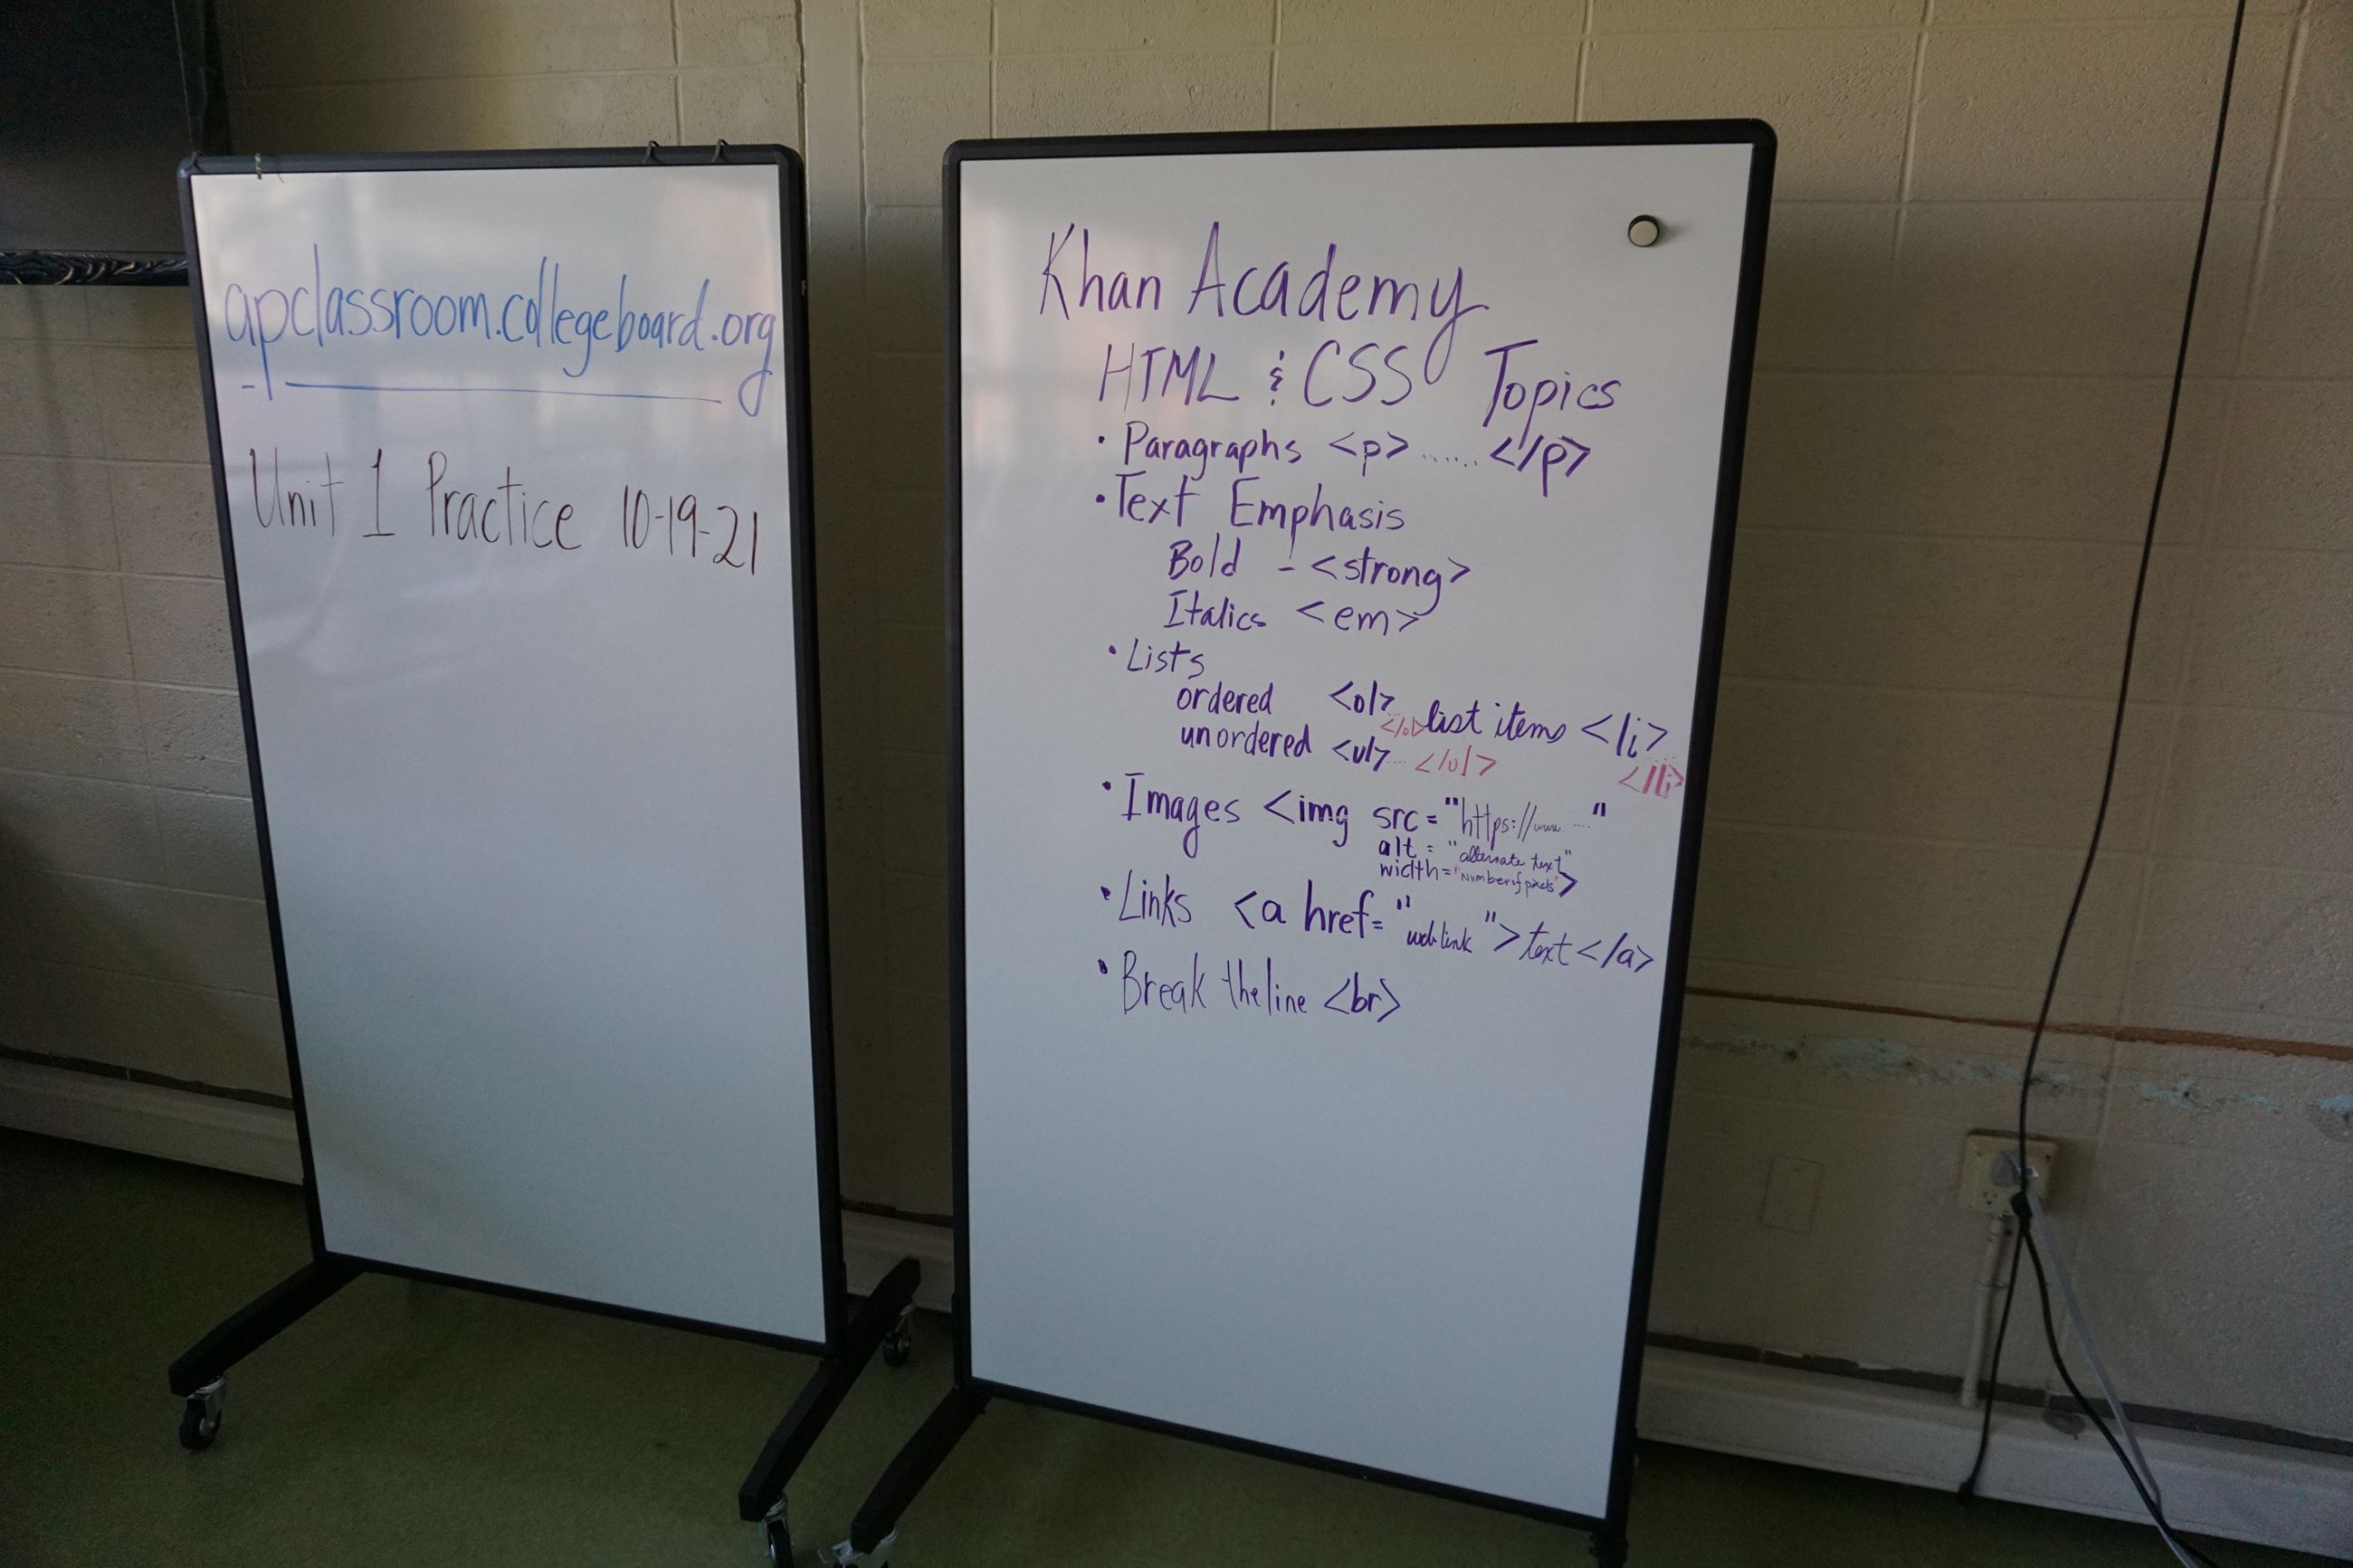 apclassroom.collegeboard.org
Unit 1 Practice 10-19-21
Khan Academy
HTML & CSS Topics
• Paragraphs <p> ...... </p>
• Text Emphasis
Bold - <strong>
Italics <em>
• Lists
ordered <ol> ... </ol> list items <li> ...
unordered <ul> ... </ul> </li>
• Images <img src = "https://www. ...."
alt = "alternate text"
width = "Number of pixels">
• Links <a href= "weblink"> text </a>
• Break the line <br>